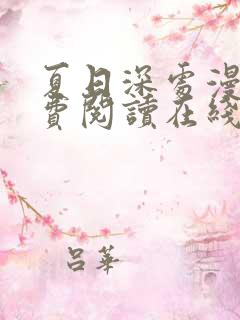 夏日深雪漫
費閱讀在綫
呂華